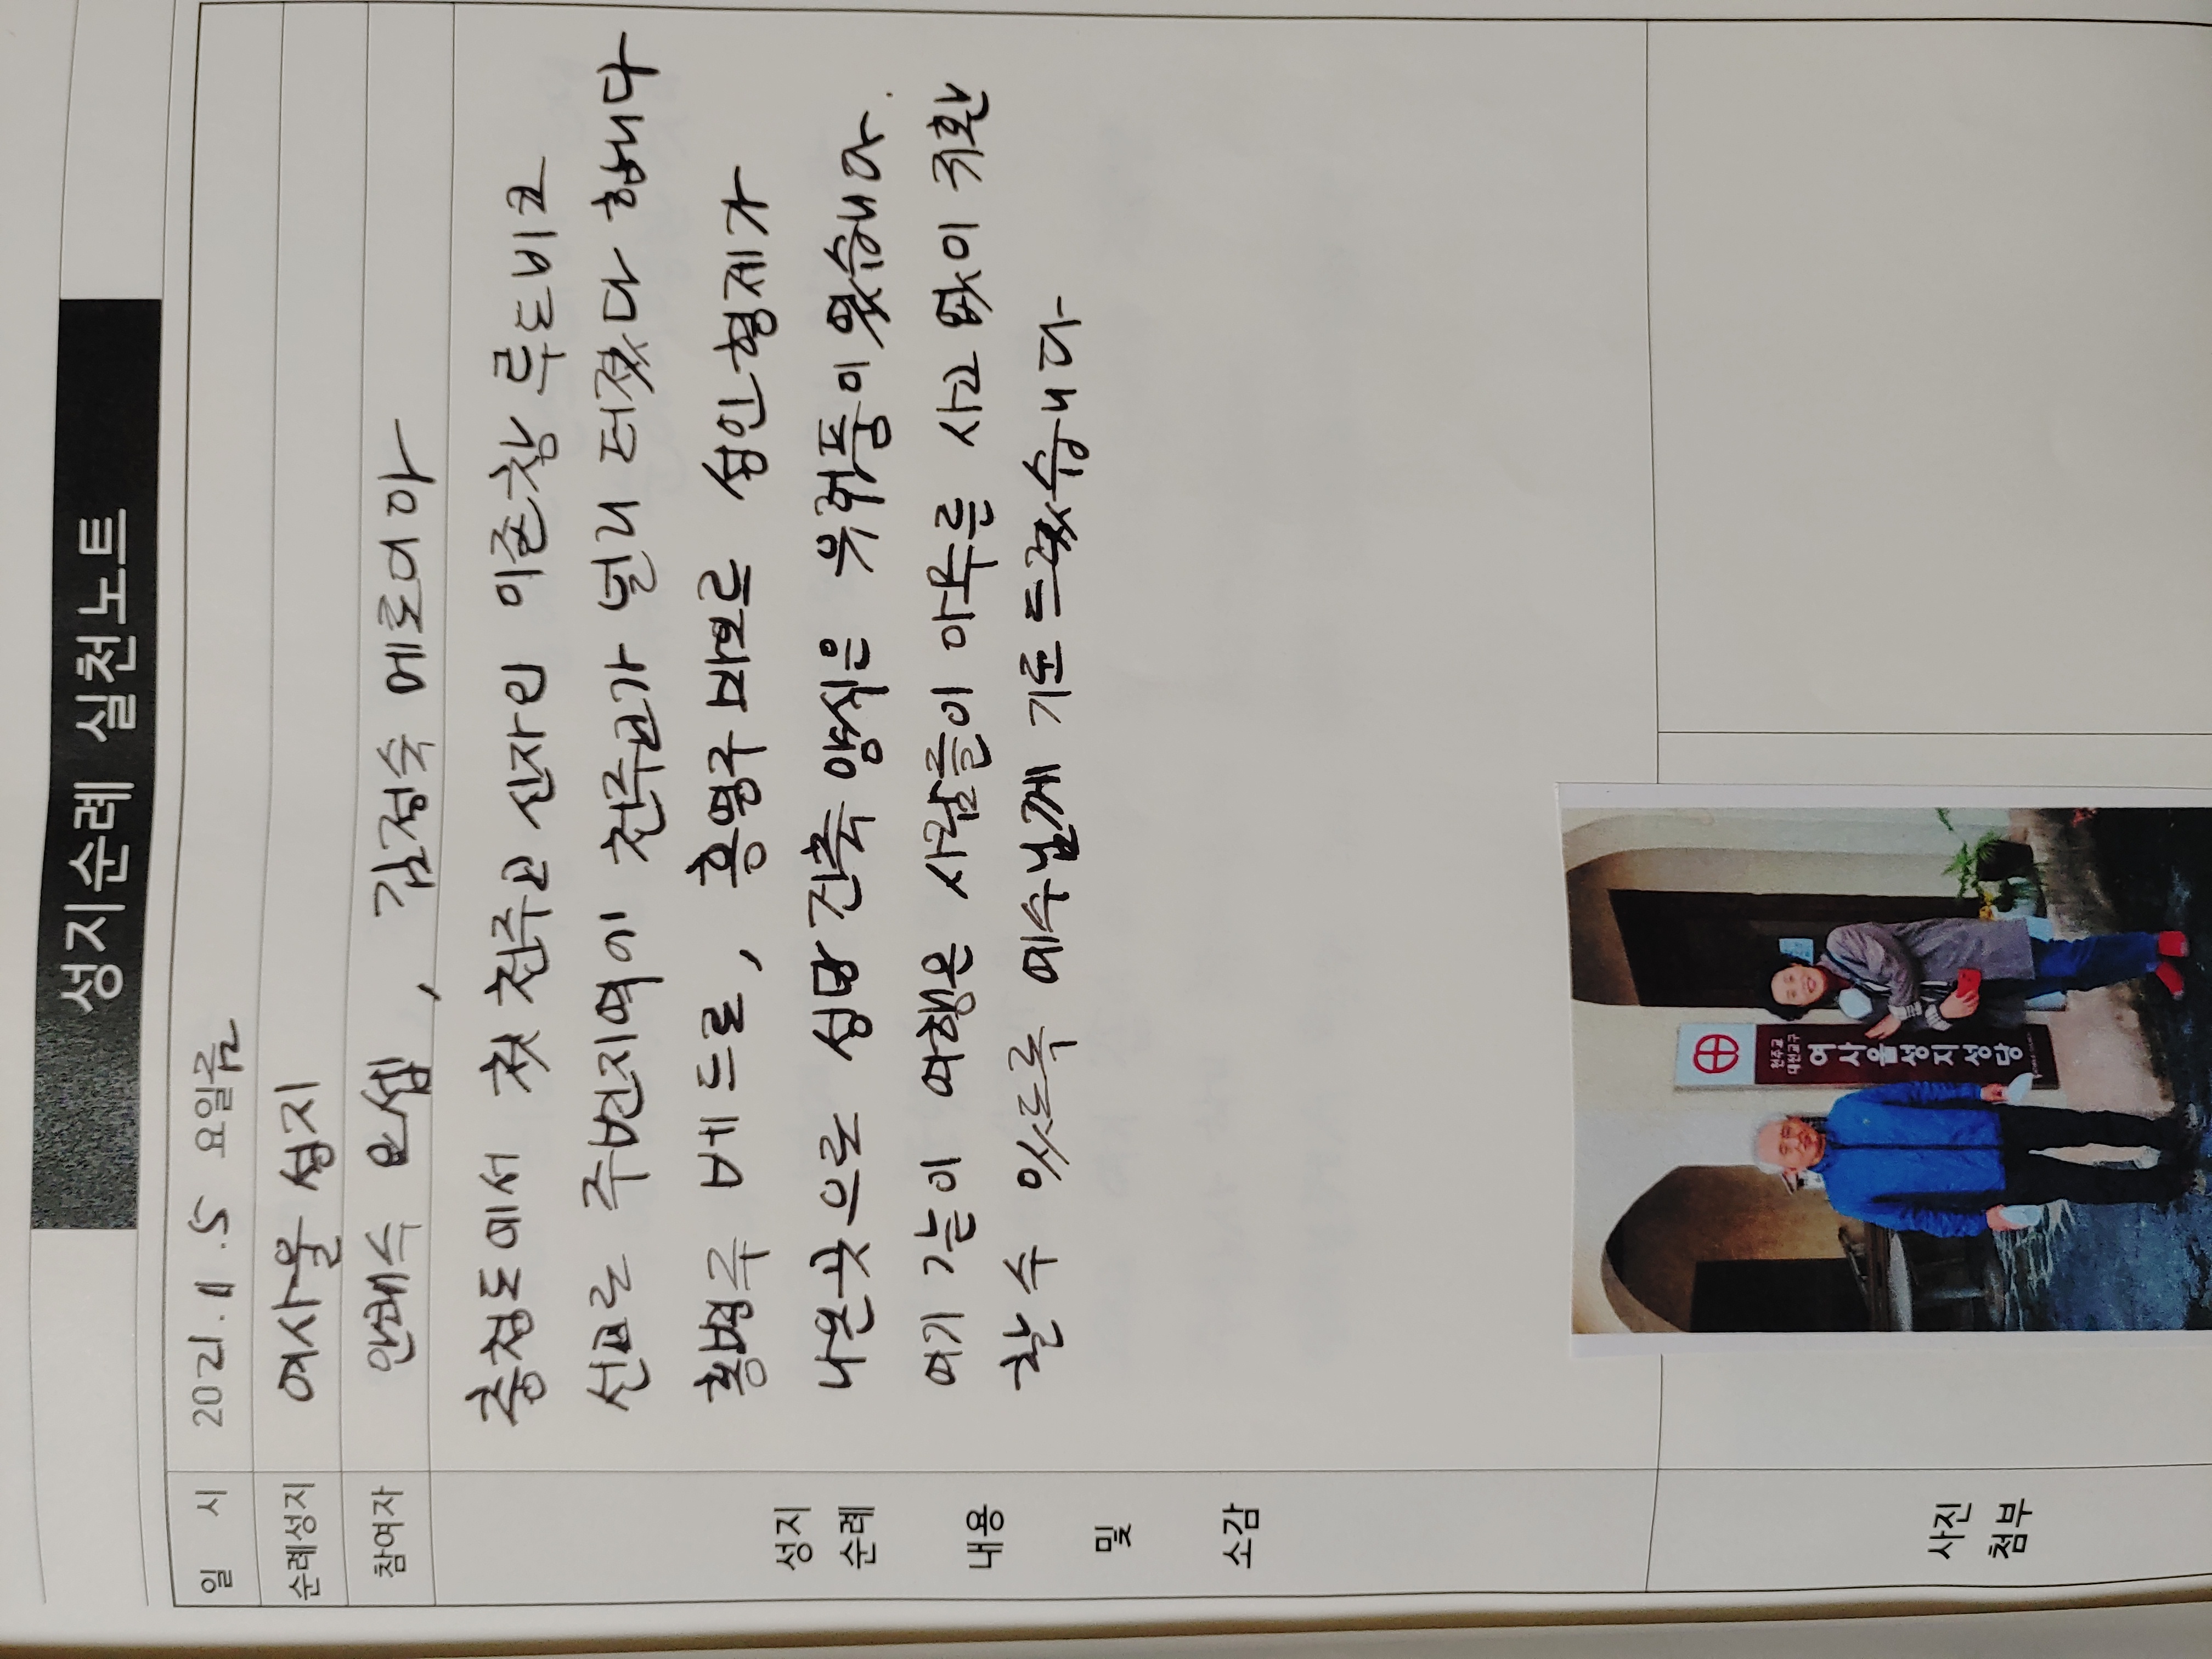 성지순례 실천노트
일 시 2021.11.5 요일금
순례성지 여사울 성지
참여자 안쾌수 요셉, 김정숙 메로디아
충청도에서 첫 천주교 신자인 이존창 루도비코
선교로 주변지역에 천주교가 널리 터졌다 합니다
홍병주 베드로, 홍영주 바오르 성인형제가
나온곳으로 성당 건축 양식은 유럽풍이였습니다.
여기 같이 여행온 사람들이 아무른 사고 없이 귀환
할 수 있도록 예수님께 기도 드렸습니다
성지
순례
내용
및
소감
사진
첨부
천주교
대전교구
여사울성지성당